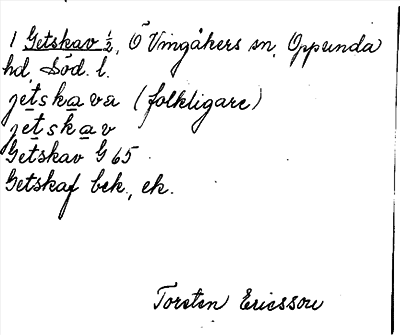 1 Getskav ½, Ö Vingåkers sn, Oppunda
hd, Söd. l.
jetskava (folkligare)
jetskav
Getskav G 65
Getskaf bek, ek.
Torsten Ericsson